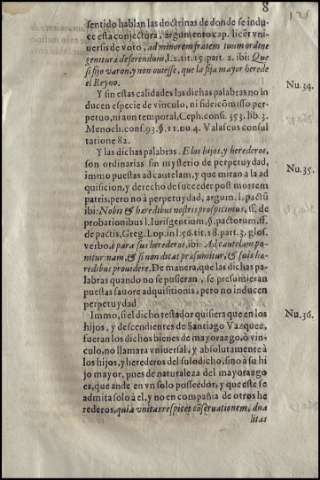 8
sentido hablan las doctrinas de donde se indu-
ce esta conjectura, argumento cap. licèt vni-
uersis de voto, ad minorem fratem tuum ordine
geniturae deferendum, l. 2. tit. 15. part. 2. ibi: Que
si fijo varon, y non ouiesse, que la fija mayor herede
el Reyno.
Nu. 34.
Y sin estas calidades las dichas palabras no in
ducen especie de vinculo, ni fideicomisso per-
petuo, ni aon temporal, Ceph. cons. 353. lib. 3.
Menoch. cons. 93. §. 11. no 4. Valascus consul
tatione 82.
Nu. 35.
Y las dichas palabras. E los hijos, y herederos,
son ordinarias sin mysterio de perpetuydad,
immo puestas ad cautelam, y que miran a la ad
quisicion, y derecho de suceder post mortem
patris, pero no à perpetuydad, argum. l. pactũ
ibi: Nobis & heredibus nostris prospicimus, ff. de
probationibus l. Iurisgentium. §. pactorum ff.
de pactis, Greg. Lop. in l. 56. tit. 18. part. 3. glos.
verbo, è para sus herederos, ibi: Ad cautelam po-
nitur nam, & si non dicat præsumitur, & suis hæ-
redibus prouidere. De manera, que las dichas pa-
labras quando no se pusieran, se presumieran
puestas fauore adquisitionis, pero no inducen
perpetuydad
Nu. 36.
Immo, si el dicho testador quisiera que en los
hijos, y descendientes de Santiago Vazquez,
fueran los dichos bienes de mayorazgo, ò vin-
culo, no llamara vniuersal, y absolutamente à
los hijos, y herederos del susodicho, sino à su hi
jo mayor, pues de naturaleza del mayorazgo
es, que ande en vn solo posseedor, y que este se
admita solo à el, y no en compañia de otros he
rederos, quia vnitas respicet cõseruationem, dua
litas